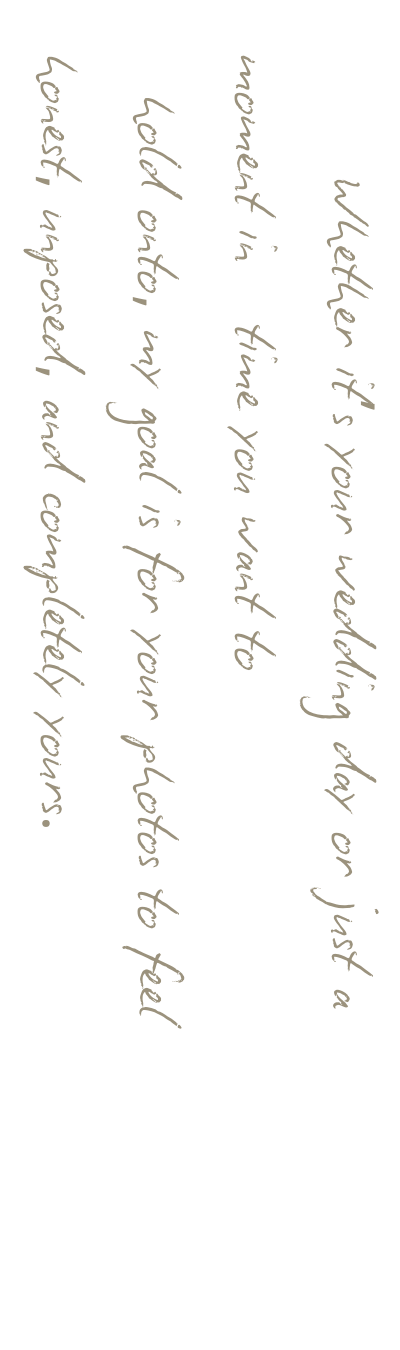 Whether it's your wedding day or just a
moment in time you want to
hold onto, my goal is for your photos to feel
honest, unposed, and completely yours.